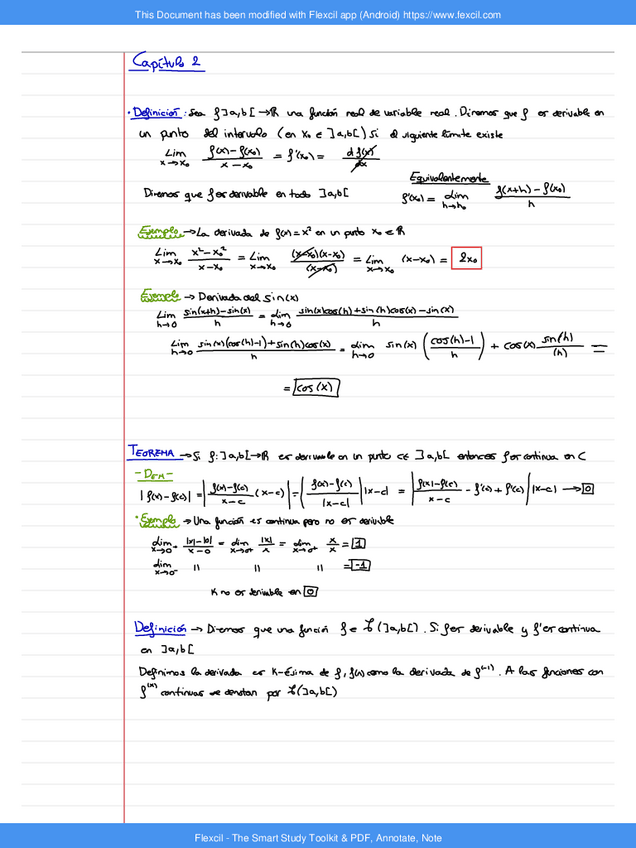 This Document has been modified with Flexcil app (Android) https://www.fexcil.com
Capítulo 2
· Definición: Sea f: ]a,b[ → ℝ una función real de variable real. Diremos que f es derivable en
un punto del intervalo (en x₀ ∈ ]a,b[) si el siguiente límite existe
Lim x→x₀ (f(x)-f(x₀))/(x-x₀) = f'(x₀) = d f(x)/dx
Equivalentemente
Diremos que f es derivable en todo ]a,b[ f'(x₀) = lim h→h₀ (f(x+h)-f(x₀))/h
Ejemplo → La derivada de f(x)=x² en un punto x₀ ∈ ℝ
Lim x→x₀ (x²-x₀²)/(x-x₀) = Lim x→x₀ ((x-x₀)(x-x₀))/(x-x₀) = Lim x→x₀ (x-x₀) = 2x₀
Ejemplo → Derivada del sin(x)
Lim h→0 (sin(x+h)-sin(x))/h = lim h→0 (sin(x)cos(h)+sin(h)cos(x)-sin(x))/h
Lim h→0 (sin(x)(cos(h)-1)+sin(h)cos(x))/h = lim h→0 sin(x) ((cos(h)-1)/h) + cos(x) sin(h)/(h) =
= cos(x)
TEOREMA → Si f: ]a,b[→ℝ es derivable en un punto c∈ ]a,b[ entonces f es continua en C
- DEM -
|f(x)-f(c)| = |(f(x)-f(c))/(x-c) (x-c)| = |(f(x)-f(c))/|x-c|| |x-c| = |(f(x)-f(c))/(x-c) - f'(c) + f'(c)| |x-c| → 0
· Ejemplo → Una función es continua pero no es derivable
lim x→0⁺ (|x|-|0|)/(x-0) = lim x→0⁺ |x|/x = lim x→0⁺ x/x = 1
lim x→0⁻ " " " = -1
K no es derivable en 0
Definición → Diremos que una función f ∈ ℒ(]a,b[). Si f es derivable y f' es continua
en ]a,b[
Definimos la derivada es K-ésima de f, f(x) como la derivada de f⁽⁻¹⁾. A las funciones con
f⁽ᵏ⁾ continuas se denotan por ℒ(]a,b[)
Flexcil - The Smart Study Toolkit & PDF, Annotate, Note